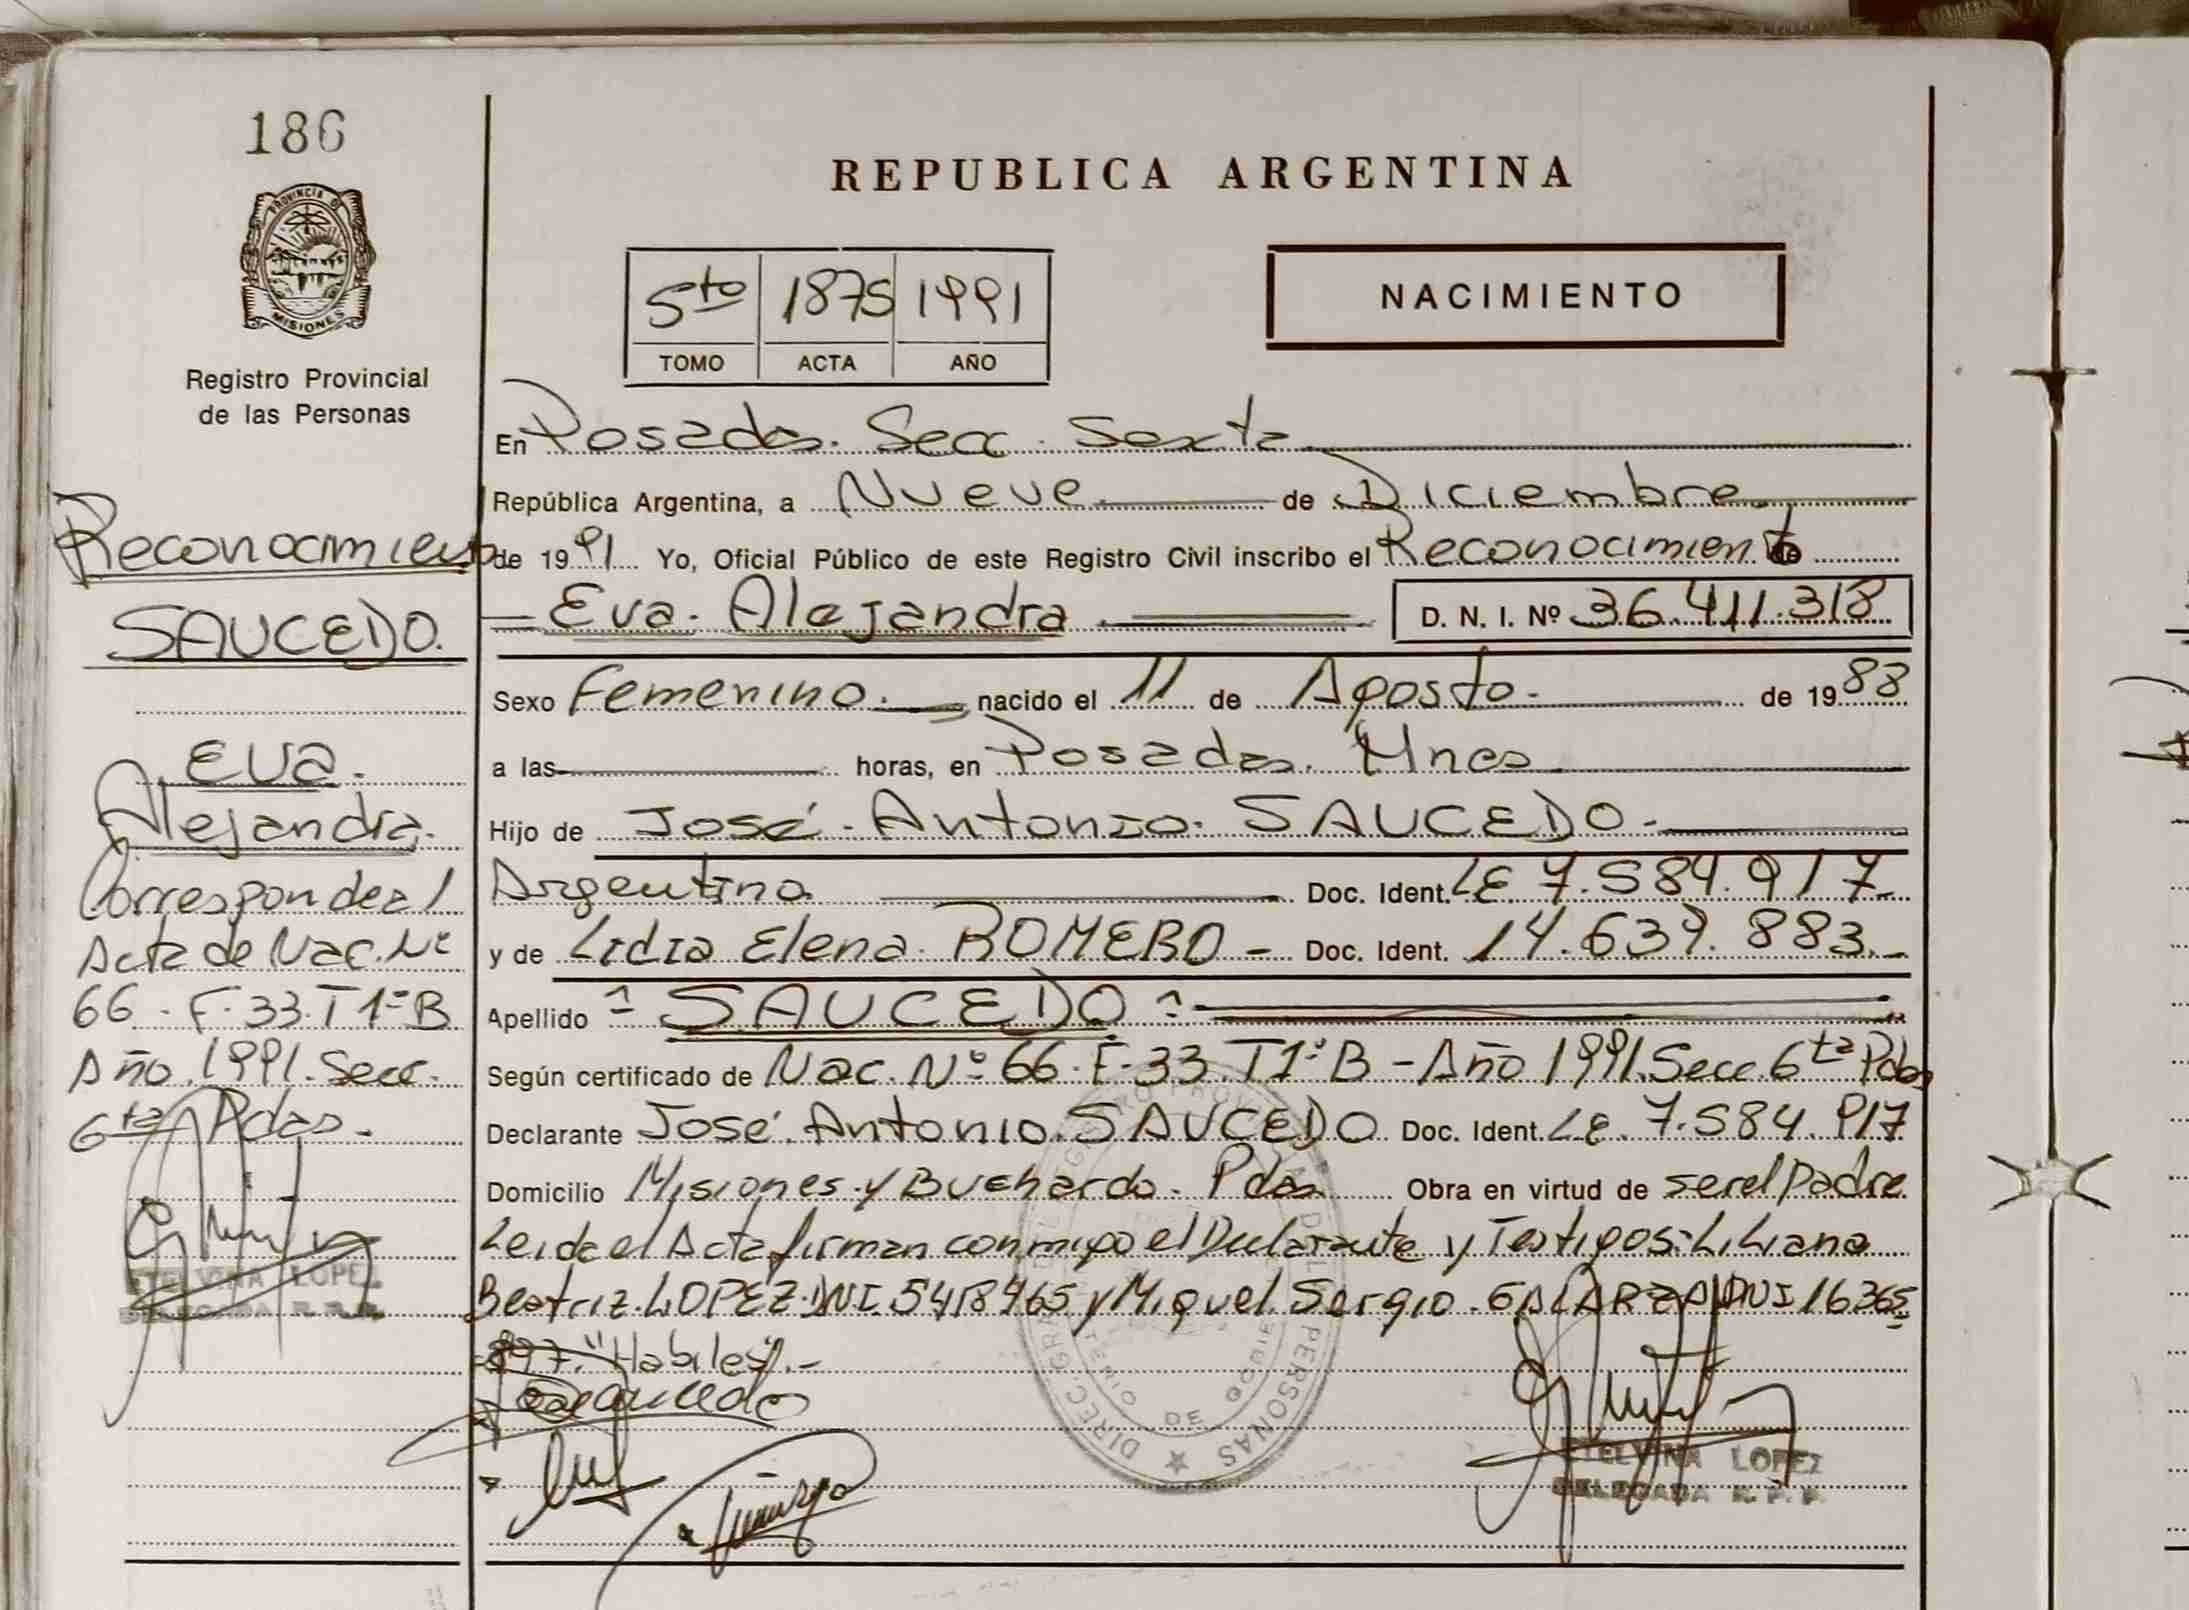 186
PROVINCIA DE
MISIONES
Registro Provincial
de las Personas
Reconocimiento
SAUCEDO.
Eva.
Alejandra.
Corresponde al
Acta de Nac. Nº
66 - F. 33. T 1º B
Año. 1991. Secc.
6ta Pdas.
ETELVINA LOPEZ
DELEGADA R. P. P.
REPUBLICA ARGENTINA
5to 1875 1991
TOMO ACTA AÑO
NACIMIENTO
En Posadas. Secc. Sexta
República Argentina, a Nueve de Diciembre.
de 1991 Yo, Oficial Público de este Registro Civil inscribo el Reconocimiento
Eva. Alejandra D. N. I. Nº 36.411.318
Sexo Femenino. nacido el 11 de Agosto. de 1988
a las horas, en Posadas. Mnes
Hijo de José. Antonio. SAUCEDO.
Argentino Doc. Ident. LE 7.584.917.
y de Lidia Elena. ROMERO - Doc. Ident. 14.639.883.-
Apellido SAUCEDO
Según certificado de Nac. Nº 66. F. 33. T1º B - Año 1991. Secc. 6ta Pdas
Declarante José. Antonio. SAUCEDO Doc. Ident. L.E. 7.584.917
Domicilio Misiones y Buchardo. Pdas Obra en virtud de ser el Padre
Leida el Acta firman conmigo el Declarante y Testigos: Liliana
Beatriz. LOPEZ. DNI. 5418965 y Miguel Sergio. GALARZA DNI 16365
897. "Habiles".-
DIREC. GRAL DEL REGISTRO PROVINCIAL DE LAS PERSONAS
DE GOBIE
ETELVINA LOPEZ
DELEGADA R. P. P.